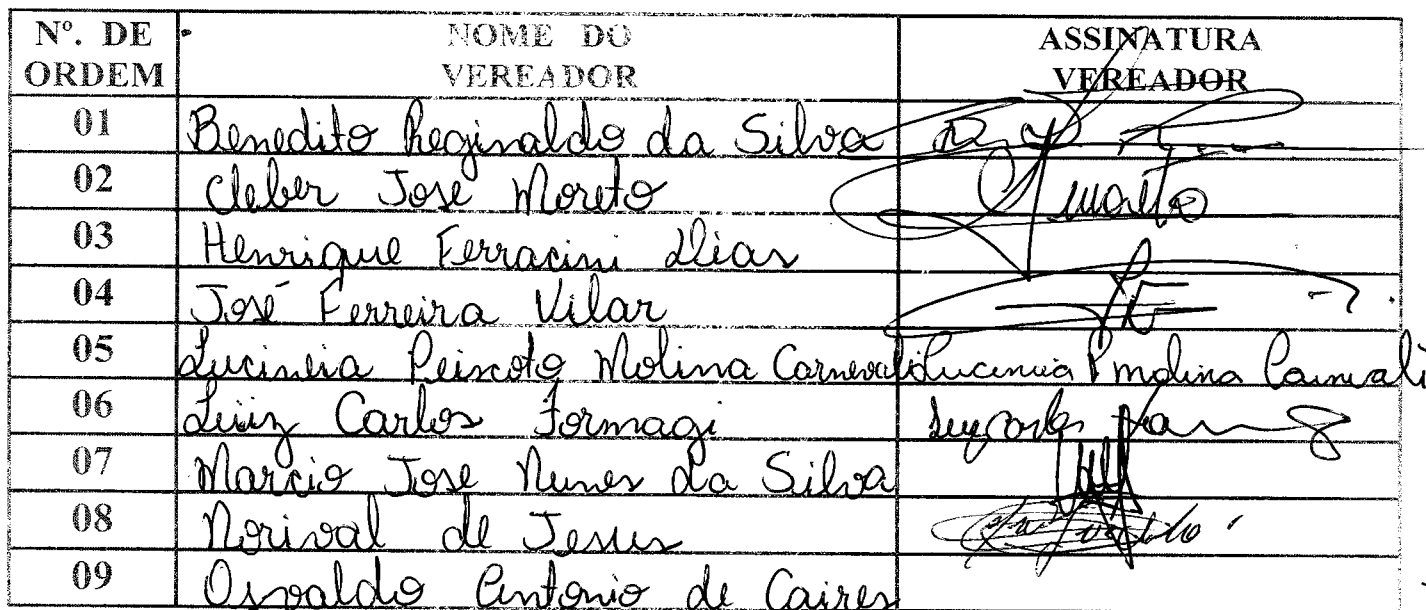 Nº. DE ORDEM NOME DO VEREADOR ASSINATURA VEREADOR
01 Benedito Reginaldo da Silva
02 Cleber Jose Moreto Moreto
03 Henrique Ferracini Dias
04 José Ferreira Vilar
05 Lucineia Peixoto Molina Carnevali Lucineia P Molina Carnevali
06 Luiz Carlos Formagi Luiz Carlos
07 Marcio Jose Nunes da Silva
08 Norival de Jesus
09 Osvaldo Antonio de Caires